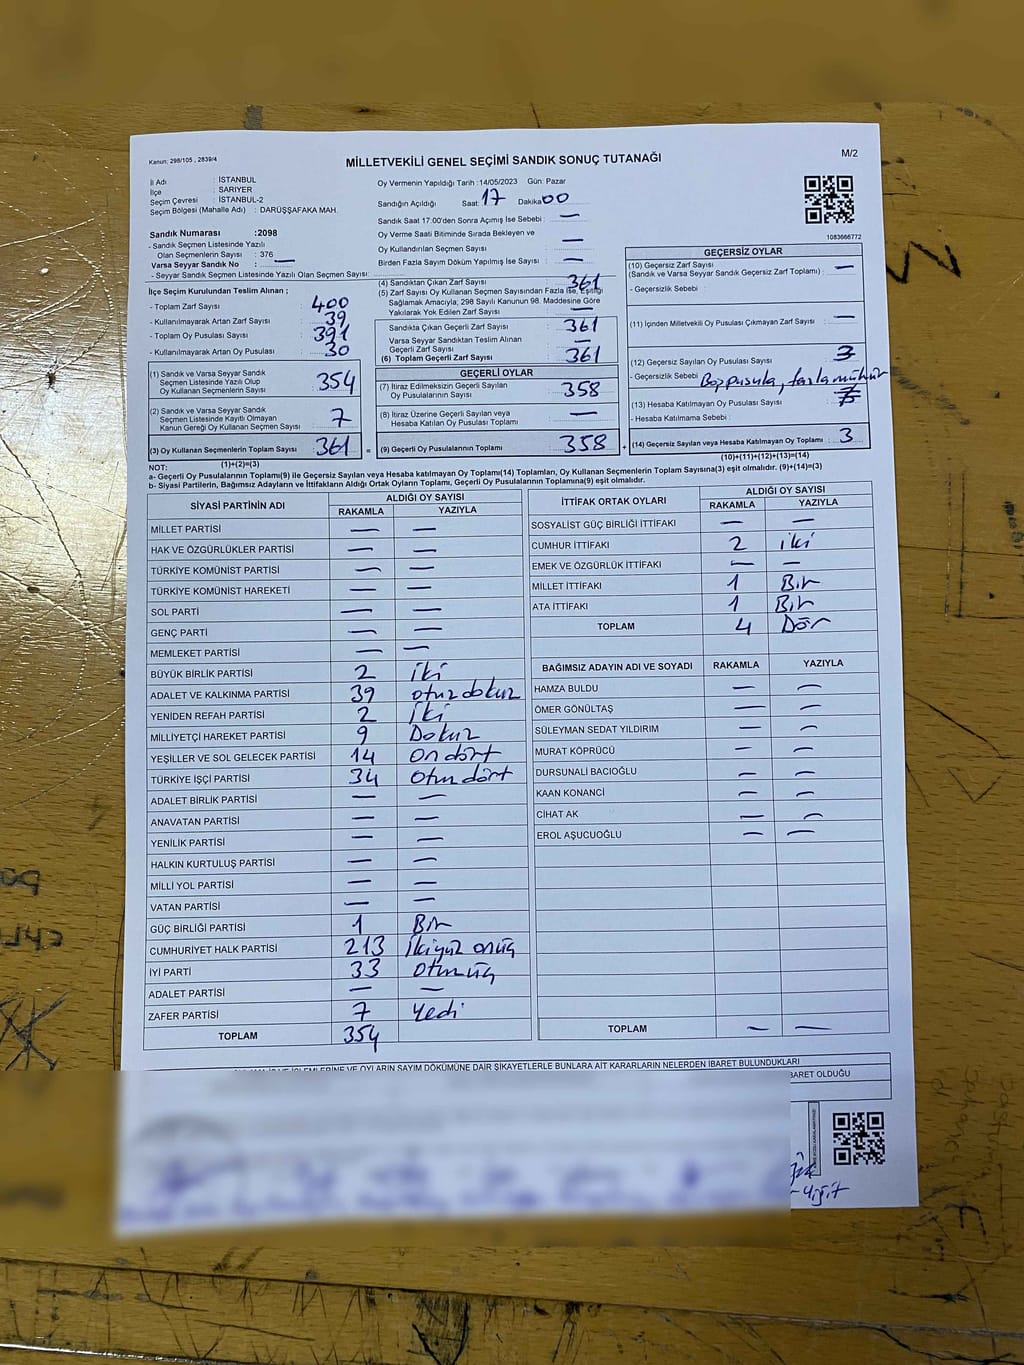 Kanun: 298/105 , 2839/4
MİLLETVEKİLİ GENEL SEÇİMİ SANDIK SONUÇ TUTANAĞI
M/2
İl Adı : İSTANBUL
İlçe : SARIYER
Seçim Çevresi : İSTANBUL-2
Seçim Bölgesi (Mahalle Adı) : DARÜŞŞAFAKA MAH.
Sandık Numarası :2098
- Sandık Seçmen Listesinde Yazılı
Olan Seçmenlerin Sayısı : 376
Varsa Seyyar Sandık No : —
- Seyyar Sandık Seçmen Listesinde Yazılı Olan Seçmen Sayısı:
Oy Vermenin Yapıldığı Tarih :14/05/2023 Gün: Pazar
Sandığın Açıldığı Saat: 17 Dakika 00
Sandık Saat 17:00'den Sonra Açımış İse Sebebi : —
Oy Verme Saati Bitiminde Sırada Bekleyen ve
Oy Kullandırılan Seçmen Sayısı : —
Birden Fazla Sayım Döküm Yapılmış İse Sayısı : —
1083666772
İlçe Seçim Kurulundan Teslim Alınan ;
- Toplam Zarf Sayısı : 400
- Kullanılmayarak Artan Zarf Sayısı : 39
- Toplam Oy Pusulası Sayısı : 391
- Kullanılmayarak Artan Oy Pusulası : 30
(1) Sandık ve Varsa Seyyar Sandık
Seçmen Listesinde Yazılı Olup
Oy Kullanan Seçmenlerin Sayısı : 354
(2) Sandık ve Varsa Seyyar Sandık
Seçmen Listesinde Kayıtlı Olmayan
Kanun Gereği Oy Kullanan Seçmen Sayısı : 7
(3) Oy Kullanan Seçmenlerin Toplam Sayısı : 361 =
(1)+(2)=(3)
(4) Sandıktan Çıkan Zarf Sayısı : 361
(5) Zarf Sayısı Oy Kullanan Seçmen Sayısından Fazla İse, Eşitliği
Sağlamak Amacıyla, 298 Sayılı Kanunun 98. Maddesine Göre
Yakılarak Yok Edilen Zarf Sayısı : —
Sandıkta Çıkan Geçerli Zarf Sayısı : 361
Varsa Seyyar Sandıktan Teslim Alınan
Geçerli Zarf Sayısı : —
(6) Toplam Geçerli Zarf Sayısı : 361
GEÇERLİ OYLAR
(7) İtiraz Edilmeksizin Geçerli Sayılan
Oy Pusulasının Sayısı : 358
(8) İtiraz Üzerine Geçerli Sayılan veya
Hesaba Katılan Oy Pusulası Toplamı : —
(9) Geçerli Oy Pusulalarının Toplamı : 358 +
GEÇERSİZ OYLAR
(10) Geçersiz Zarf Sayısı
(Sandık ve Varsa Seyyar Sandık Geçersiz Zarf Toplamı) : —
- Geçersizlik Sebebi :
(11) İçinden Milletvekili Oy Pusulası Çıkmayan Zarf Sayısı : —
(12) Geçersiz Sayılan Oy Pusulası Sayısı : 3
- Geçersizlik Sebebi : Boş pusula, fazla mühür
(13) Hesaba Katılmayan Oy Pusulası Sayısı :
- Hesaba Katılmama Sebebi :
(14) Geçersiz Sayılan veya Hesaba Katılmayan Oy Toplamı : 3
(10)+(11)+(12)+(13)=(14)
NOT:
a- Geçerli Oy Pusulalarının Toplamı(9) ile Geçersiz Sayılan veya Hesaba katılmayan Oy Toplamı(14) Toplamları, Oy Kullanan Seçmenlerin Toplam Sayısına(3) eşit olmalıdır. (9)+(14)=(3)
b- Siyasi Partilerin, Bağımsız Adayların ve İttifakların Aldığı Ortak Oyların Toplamı, Geçerli Oy Pusulalarının Toplamına(9) eşit olmalıdır.
SİYASİ PARTİNİN ADI ALDIĞI OY SAYISI
RAKAMLA YAZIYLA
MİLLET PARTİSİ — —
HAK VE ÖZGÜRLÜKLER PARTİSİ — —
TÜRKİYE KOMÜNİST PARTİSİ — —
TÜRKİYE KOMÜNİST HAREKETİ — —
SOL PARTİ — —
GENÇ PARTİ — —
MEMLEKET PARTİSİ — —
BÜYÜK BİRLİK PARTİSİ 2 iki
ADALET VE KALKINMA PARTİSİ 39 otuz dokuz
YENİDEN REFAH PARTİSİ 2 İki
MİLLİYETÇİ HAREKET PARTİSİ 9 Dokuz
YEŞİLLER VE SOL GELECEK PARTİSİ 14 on dört
TÜRKİYE İŞÇİ PARTİSİ 34 otuz dört
ADALET BİRLİK PARTİSİ — —
ANAVATAN PARTİSİ — —
YENİLİK PARTİSİ — —
HALKIN KURTULUŞ PARTİSİ — —
MİLLİ YOL PARTİSİ — —
VATAN PARTİSİ — —
GÜÇ BİRLİĞİ PARTİSİ 1 Bir
CUMHURİYET HALK PARTİSİ 213 İkiyüz onüç
İYİ PARTİ 33 otuz üç
ADALET PARTİSİ — —
ZAFER PARTİSİ 7 Yedi
TOPLAM 354
İTTİFAK ORTAK OYLARI ALDIĞI OY SAYISI
RAKAMLA YAZIYLA
SOSYALİST GÜÇ BİRLİĞİ İTTİFAKI — —
CUMHUR İTTİFAKI 2 iki
EMEK VE ÖZGÜRLÜK İTTİFAKI — —
MİLLET İTTİFAKI 1 Bir
ATA İTTİFAKI 1 Bir
TOPLAM 4 Dör
BAĞIMSIZ ADAYIN ADI VE SOYADI RAKAMLA YAZIYLA
HAMZA BULDU — —
ÖMER GÖNÜLTAŞ — —
SÜLEYMAN SEDAT YILDIRIM — —
MURAT KÖPRÜCÜ — —
DURSUNALİ BACIOĞLU — —
KAAN KONANCİ — —
CİHAT AK — —
EROL AŞUCUOĞLU — —
TOPLAM — —
İŞLEMLERİNE VE OYLARIN SAYIM DÖKÜMÜNE DAİR ŞİKAYETLERLE BUNLARA AİT KARARLARIN NELERDEN İBARET BULUNDUKLARI
BARET OLDUĞU